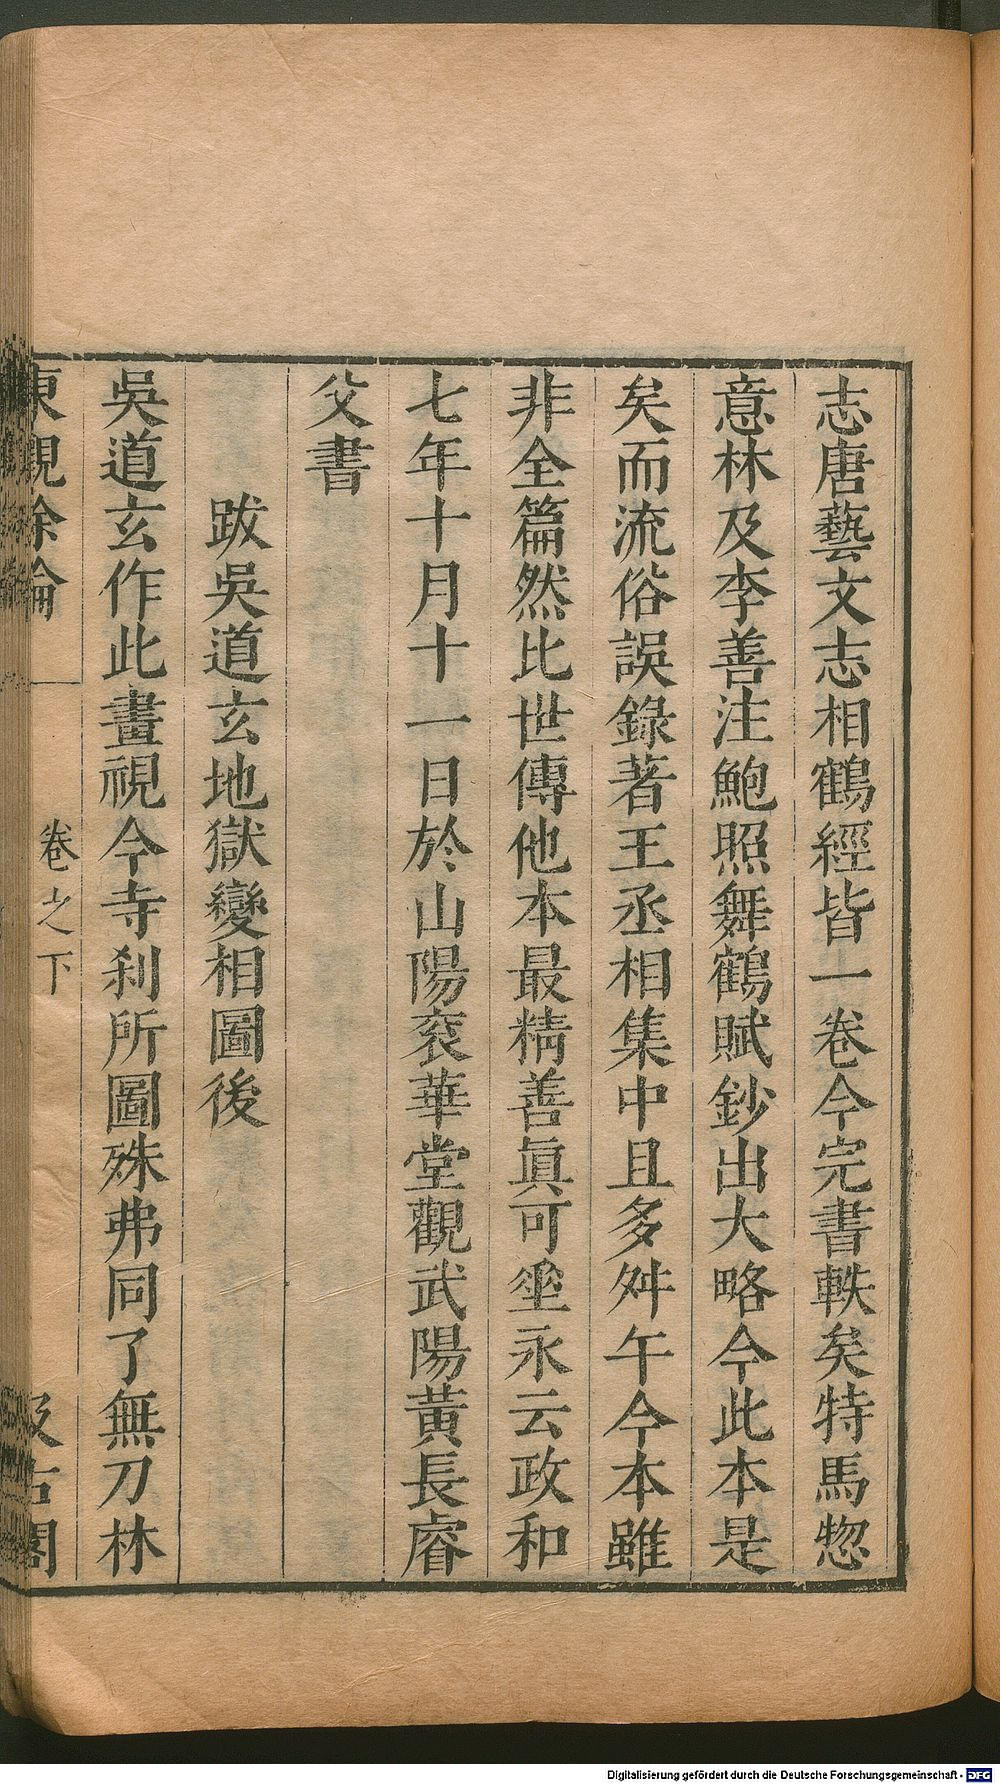 志唐藝文志相鶴經皆一卷今完書軼矣特馬惣
意林及李善注鮑照舞鶴賦鈔出大略今此本是
矣而流俗誤錄著王丞相集中且多舛午今本雖
非全篇然比世傳他本最精善眞可垩永云政和
七年十月十一日於山陽袞華堂觀武陽黃長睿
父書
跋吳道玄地獄變相圖後
吳道玄作此畫視今寺刹所圖殊弗同了無刀林
東觀餘論
卷之下
汲古閣
Digitalisierung gefördert durch die Deutsche Forschungsgemeinschaft - DFG